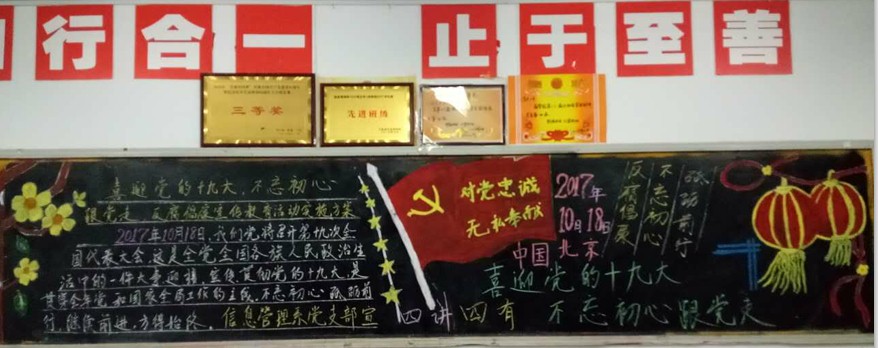 行合一 止于至善
三等奖
先进班级
喜迎党的十九大,不忘初心
跟党走,反腐倡廉宣传教育活动实施方案
2017年10月18日,我们党将召开第十九次全
国代表大会,这是全党全国各族人民政治生
活中的一件大事,迎接、宣传、贯彻党的十九大,是
贯穿今年党和国家全局工作的主线,不忘初心砥砺前
行,继续前进,方得始终。信息管理系党支部宣
对党忠诚
无私奉献
2017年
10月18日
中国北京
反腐倡廉
不忘初心
砥砺前行
喜迎党的十九大
四讲四有 不忘初心跟党走